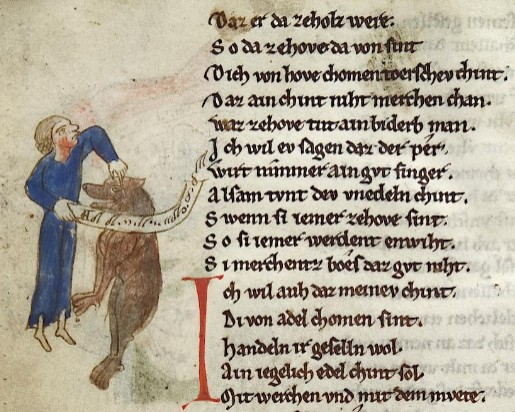 Daz er da ze holz were.
So da ze hove da von sint
Dich von hove chomen toerschev chint.
Daz ain chint niht merchen chan.
waz ze hove tůt ain biderb man.
Ich wil ev sagen daz der per.
wirt nimmer ain gvt singer.
Alsam tvnt dev vnedeln chint.
Swenn si iemer ze hove sint.
So si iemer werdent enwiht.
Si merchent z boes daz gvt niht.
Ich wil auh daz meinev chint.
Di von adel chomen sint.
handeln ir geselln wol.
Ain iegelich edel chint sol.
Mit werchen vnd mit dem mvete.